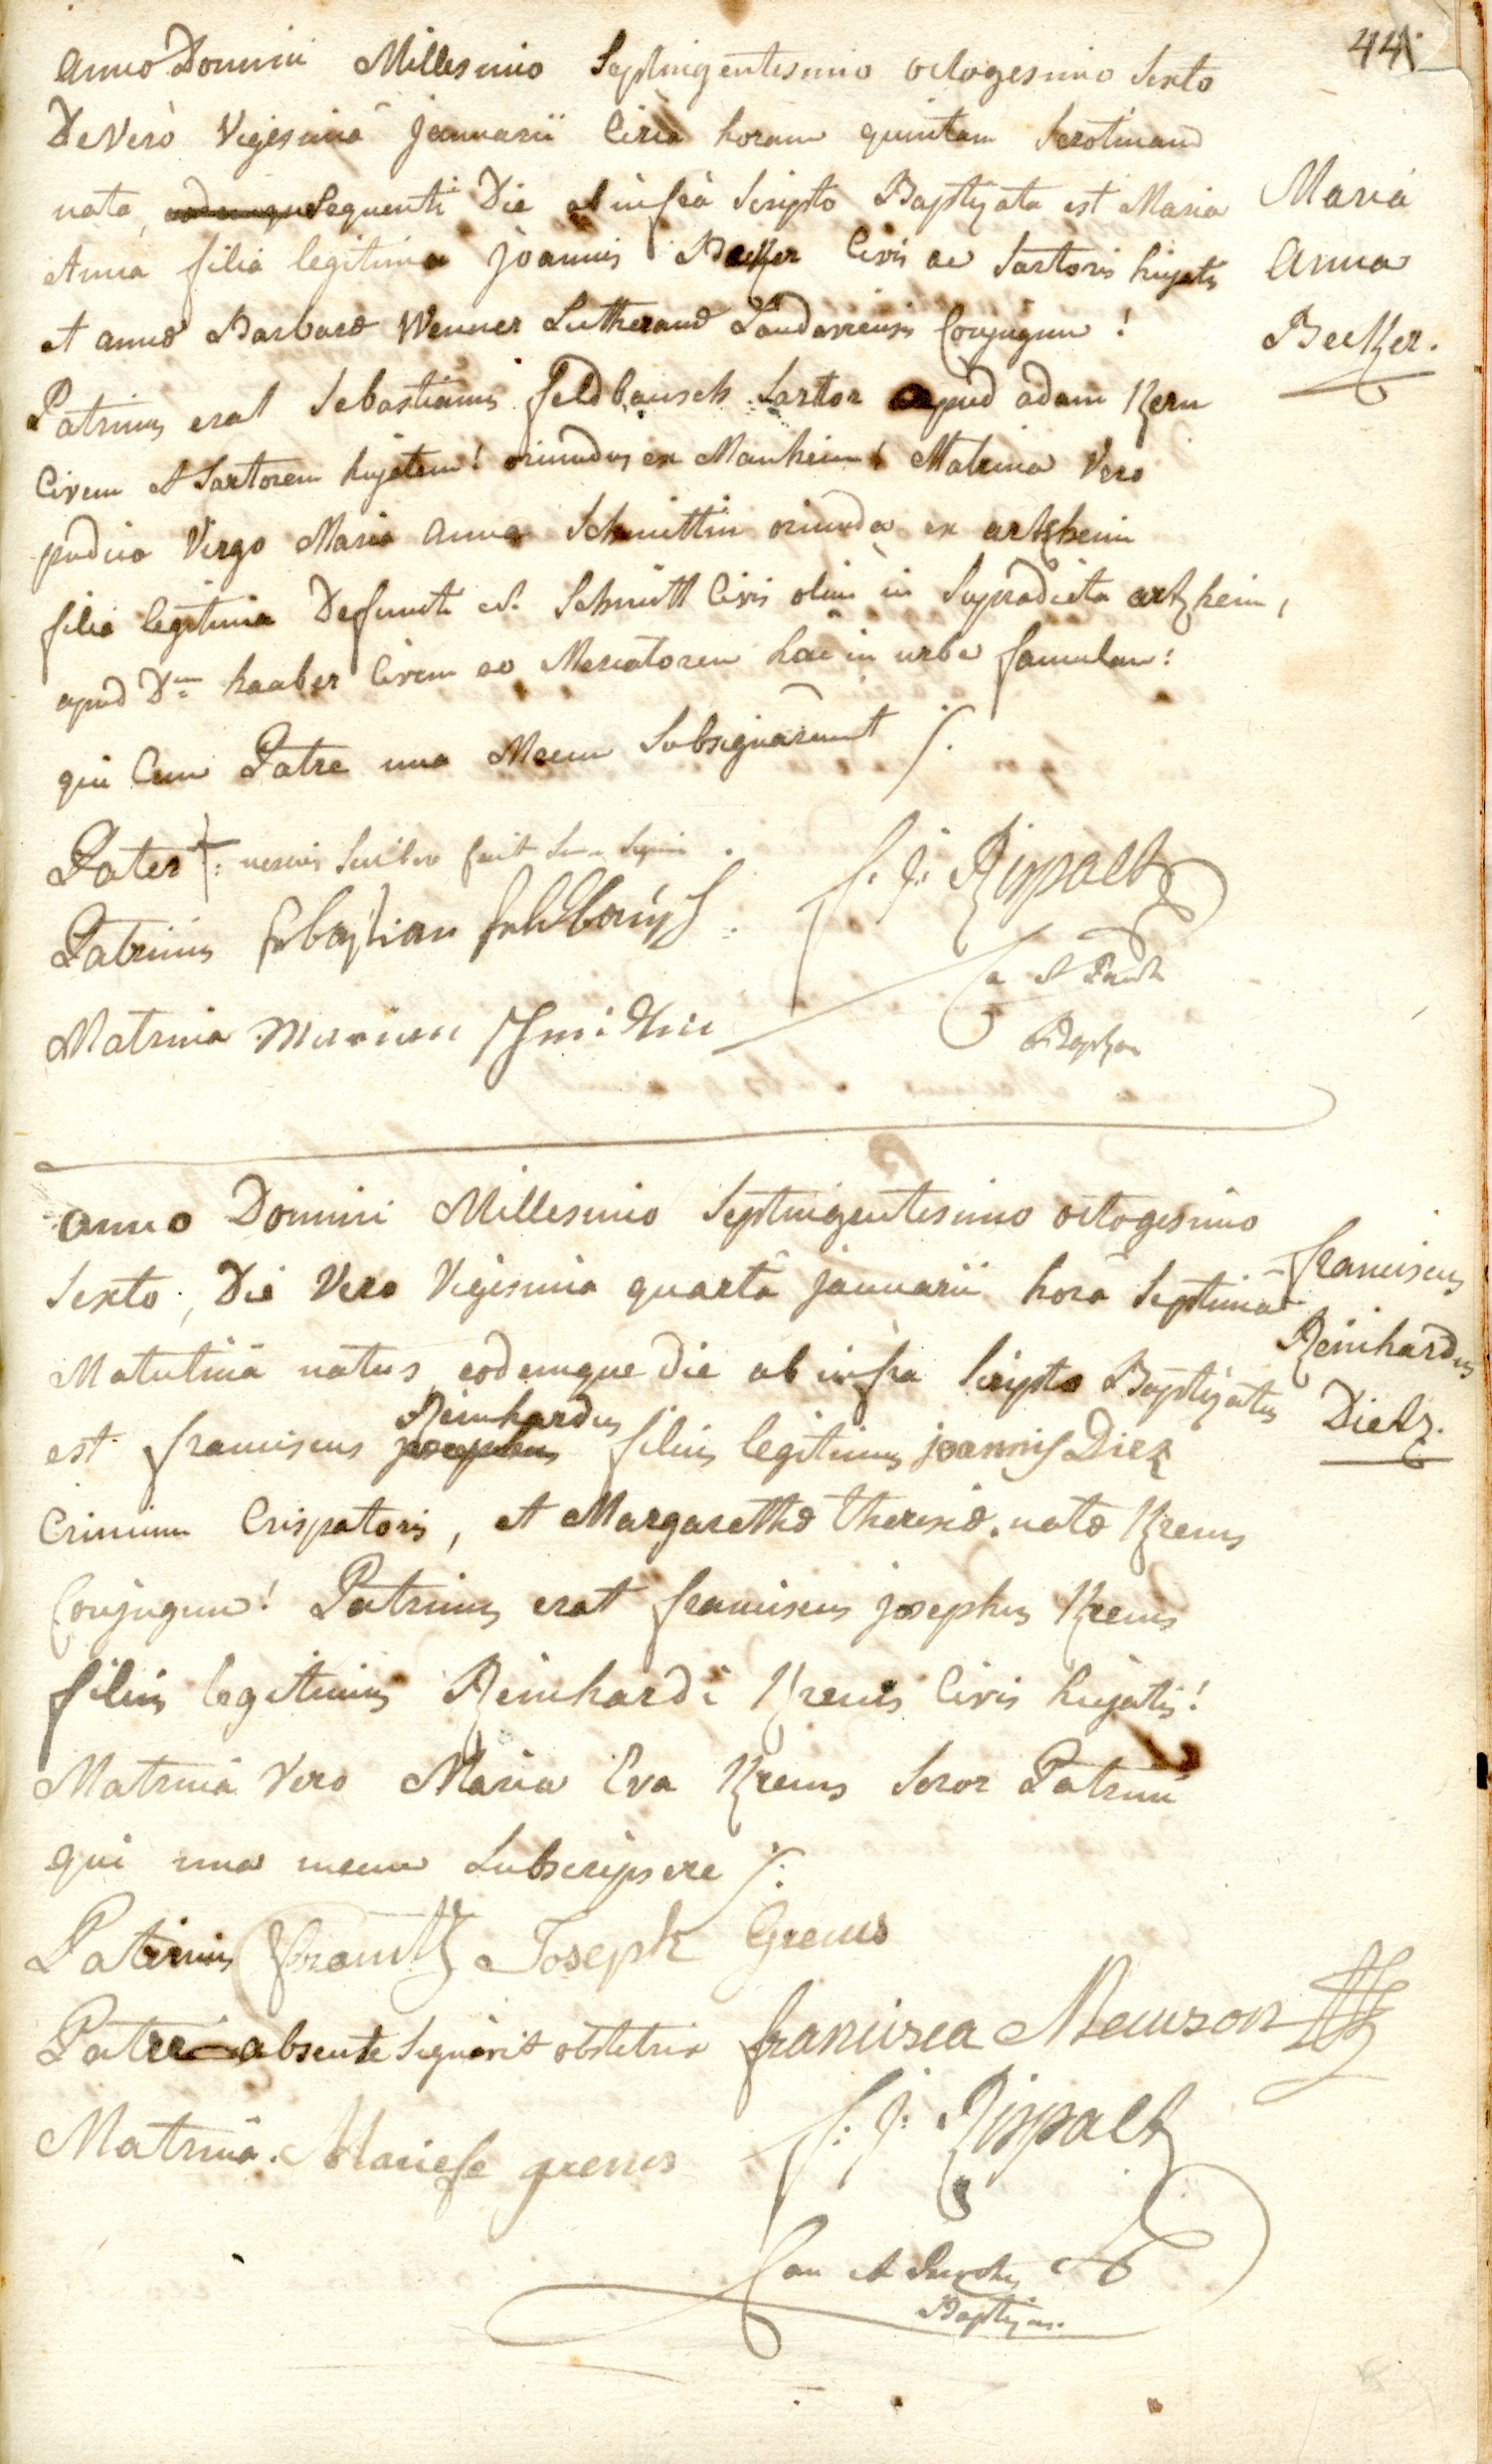 44
Anno Domini Millesimo Septingentesimo octogesimo Sexto
Die Verò Vigesimâ Januarii Circa horam quintam Serotinam
nata, Sequenti Die ab infrà Scripto Baptizata est Maria
Anna filia legitima Joannis Becker Civis ac Sartoris hujatis
et annæ Barbaræ Wenner Lutheranæ Landaviensis Conjugum!
Patrinus erat Sebastianus feldbausch Sartor apud adam Kern
Civem et Sartorem hujatem! oriundus ex Manheim! Matrina Vero
pudica Virgo Maria Anna Schmittin oriunda ex artzheim
filia legitima Defuncti N. Schmitt Civis olim in Supradicta artzheim,
apud Dnum haaber Civem ac Mercatorem hac in urbe famulan:
qui Cum Patre una Mecum Subsignarunt ./.
Maria
Anna
Becker.
Pater + nescius Scribere fecit Signum.
Patrinus Sebastian feldbausch
Matrina Mariana Schmidtin
f. J: Rippalt
Can et Paroch
Baptizans
anno Domini Millesimo Septingentesimo octogesimo
Sexto, Die Vero Vigesima quartâ januarii horâ Septimâ
Matutinâ natus eodemque die ab infra Scripto Baptizatus
Reinhardus
est franciscus josephus filius legitimus joannis Diez
Crinium Crispatoris, et Margarethæ Theresiæ natæ Krems
Conjugum! Patrinus erat franciscus josephus Krems
filius legitimus Reinhardi Krems Civis hujatis!
Matrina Vero Maria Eva Krems Soror Patrini
qui una mecum Subscripsere ./:
franciscus
Reinhardus
Dietz.
Patrinus frantz Joseph Grems
Patre absente Signavit obstetrix francisca Menrson
Matrina. Mariefe grems
f: J: Rippalt
Can et Parochus
Baptizans.